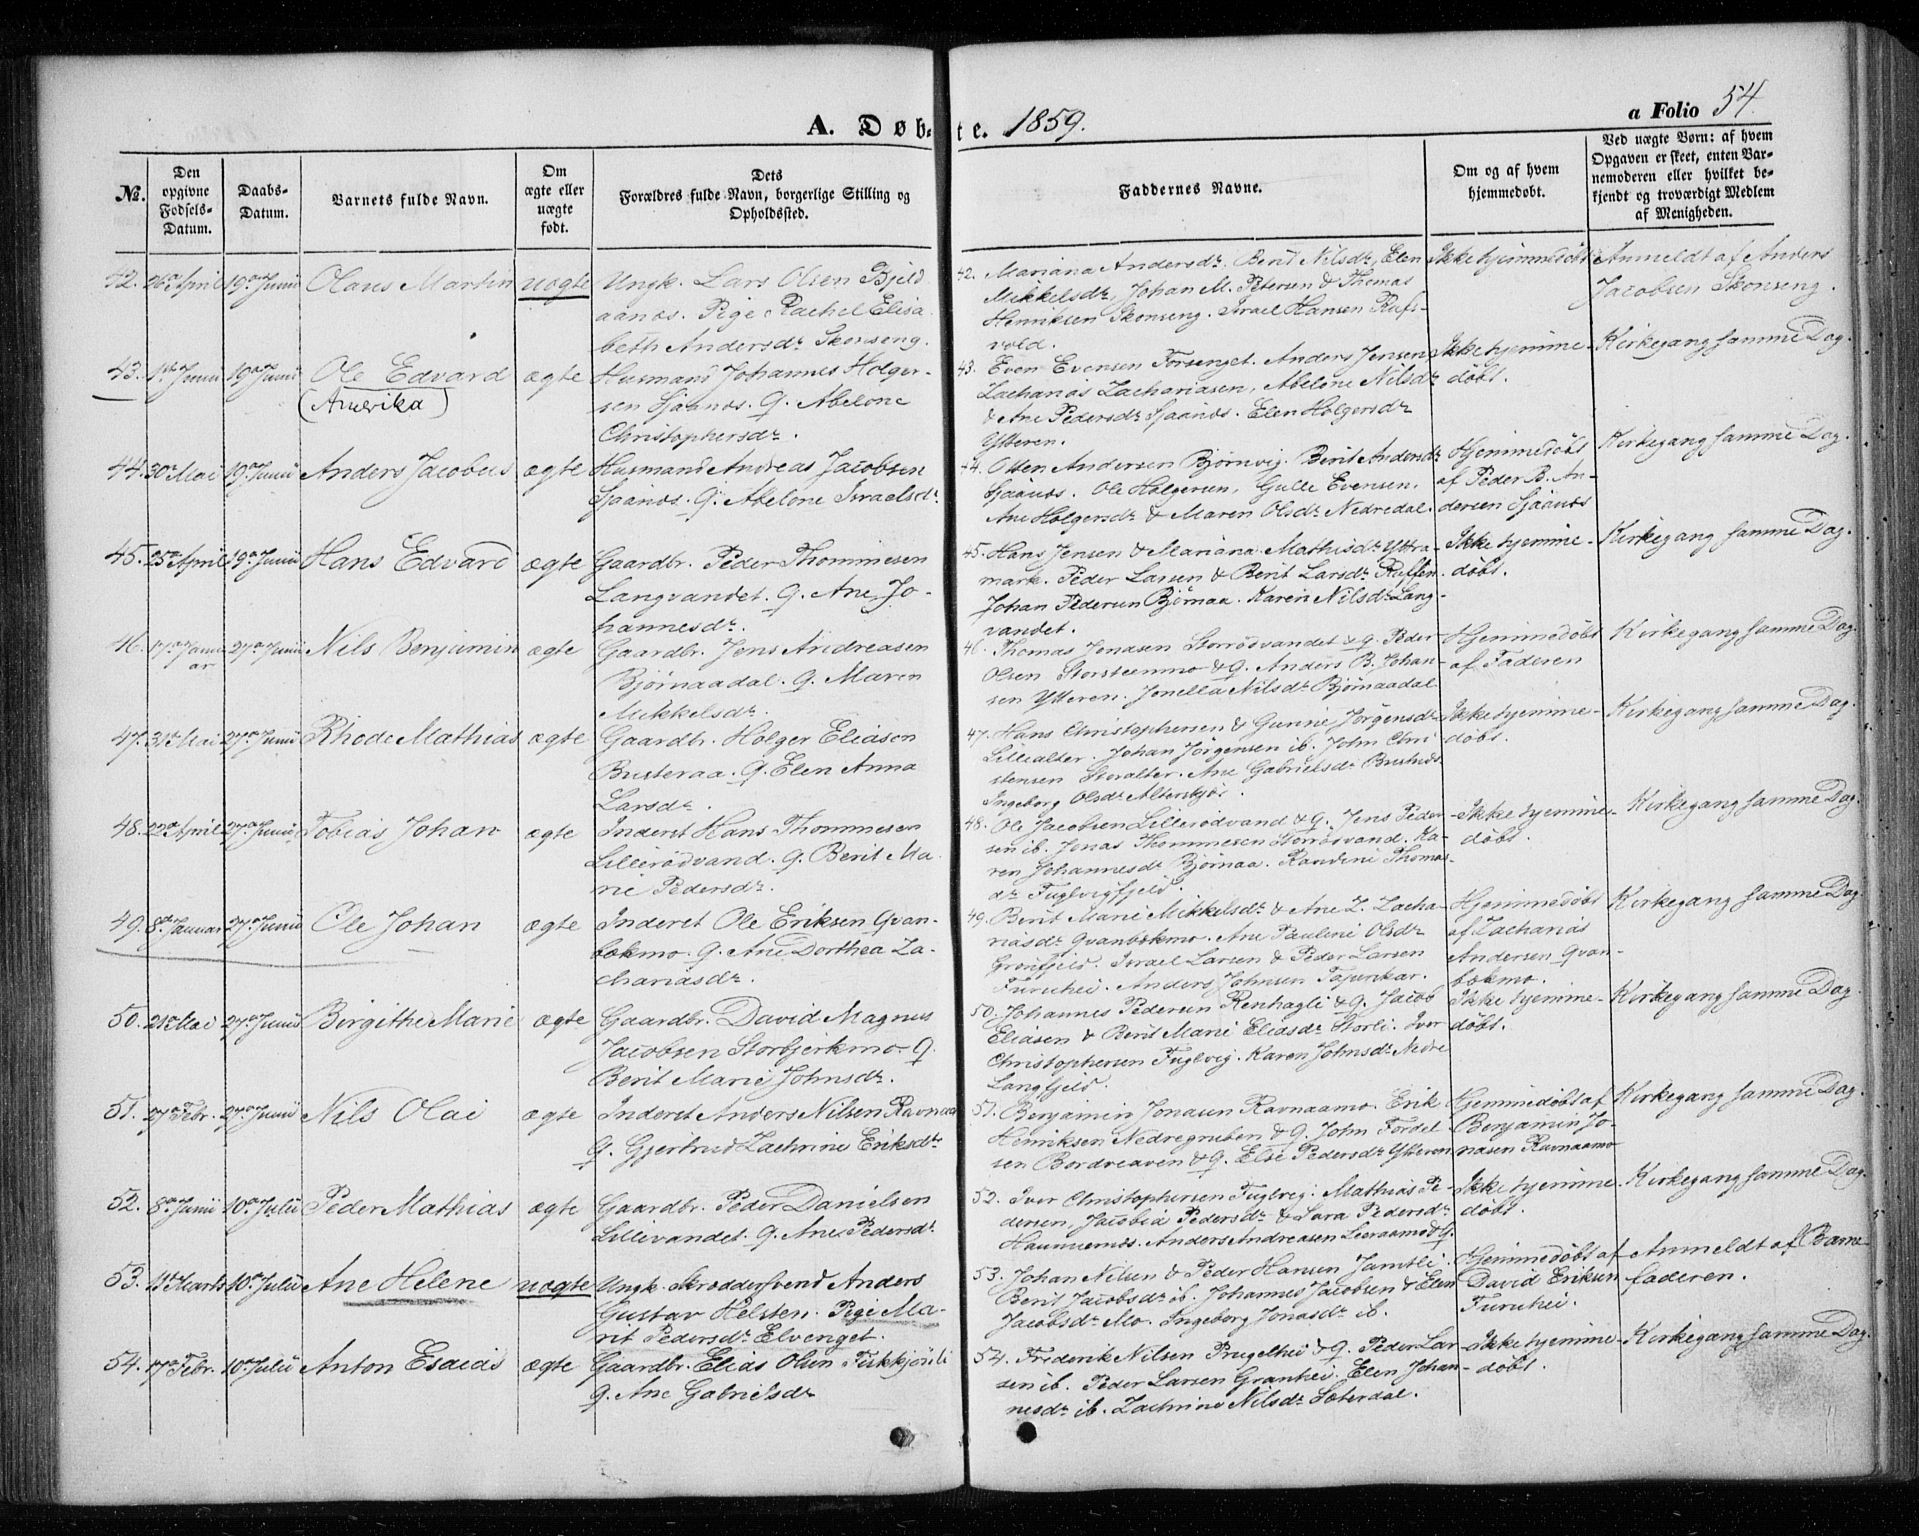 A. Døbte. 1859.
a Folio 54.
№.
Den opgivne Fødsels-Datum.
Daabs-Datum.
Barnets fulde Navn.
Om ægte eller uægte født.
Dets Forældres fulde Navn, borgerlige Stilling og Opholdssted.
Faddernes Navne.
Om og af hvem hjemmedøbt.
Ved uægte Børn: af hvem Opgaven er skeet, enten Barnemoderen eller hvilket bekjendt og troværdigt Medlem af Menigheden.
42. 26de April 19de Junii Olaus Martin uægte Ungk. Lars Olsen Bjeld
aanæs. Pige Rachel Elisa
beth Andersdr. Skonseng.
42. Mariana Andersdr. Berit Nilsdr, Elen
Mikkelsdr, Johan M. Petersen & Thomas
Henriksen Skonseng. Israel Hansen Rufs-
vold.
Ikke hjemmedøbt
Anmeldt af Anders
Jacobsen Skonseng.
43. 1ste Junii 19de Junii Ole Edvard ægte Husmand Johannes Holger-
(Amerika)
sen Sjaanæs. G. Abelone
Christophersdr.
43. Even Evensen Forsenget. Anders Jensen
Zacharias Zachariasen, Abelone Nilsdr
& Ane Pedersdr Sjaanæs. Elen Holgersdr
Ytteren.
Ikke hjemme-
døbt.
Kirkegang samme Dag.
44. 30te Mai 19de Junii Anders Jacobus ægte Husmand Andreas Jacobsen
Sjaanæs. G. Abelone Israelsdr.
44. Olsen Andersen Bjørnvig. Berit Andersdr
Sjaanæs. Ole Holgersen, Gulle Evensen.
Ane Holgersdr & Maren Olsdr Nedredal.
Hjemmedøbt
af Peder B. An-
dersen Sjaanæs
Kirkegang samme Dag.
45. 25de April 19de Junii Hans Edvard ægte Gaardbr. Peder Thommesen
Langvandet. G. Ane Jo-
hannesdr.
45. Hans Jensen & Mariana Mathisdr Yttra-
mark. Peder Larsen & Berit Larsdr Ruffen
Johan Pedersen Bjørnaa. Karen Nilsdr Lang-
vandet.
Ikke hjemme-
døbt.
Kirkegang samme Dag.
46. 17de Janu- 27de Junii Nils Benjamin ægte Gaardbr. Jens Andreasen
ar
Bjørnaadal. G. Maren
Mikkelsdr.
46. Thomas Jonasen Storrødvandet & G. Peder
Olsen Storsteenmo & G. Anders B. Johan-
sen Ytteren. Jonella Nilsdr Bjørnaadal
Hjemmedøbt
af Faderen
Kirkegang samme Dag.
47. 31te Mai 27de Junii Rhode Mathias ægte Gaardbr. Holger Eliasen
Busteraa. G. Elen Anna
Larsdr.
47. Hans Christophersen & Gurine Jørgensdr
Lillealter. Johan Jørgensen ib. John Chri-
stensen Storalter. Ane Gabrielsdr Bustnæs
Ingeborg Olsdr Alterskjær.
Ikke hjemme-
døbt.
Kirkegang samme Dag.
48. 22de April 27de Junii Tobias Johan ægte Inderst Hans Thommesen
Lillerødvand. G. Berit Ma-
rie Pedersdr.
48. Ole Jacobsen Lillerødvand & G. Jens Peder-
sen ib. Jonas Thommesen Storrødvand. Ka-
ren Johannesdr Bjørnaa. Randine Thomas-
dr Fuglvigfjeld.
Ikke hjemme-
døbt.
Kirkegang samme Dag.
49. 8de Januar 27de Junii Ole Johan ægte Inderst Ole Eriksen Qvan-
bækmo. G. Ane Dorthea Za-
chariasdr.
49. Berit Marie Mikkelsdr & Ane Z. Zacha-
riasdr Qvanbækmo. Ane Pauline Olsdr
Grønfjeld. Israel Larsen & Peder Larsen
Furuhei. Anders Johnsen
Hjemmedøbt
af Zacharias
Andersen Qvan-
bækmo.
Kirkegang samme Dag
50. 21de Mai 27de Junii Birgithe Marie ægte Gaardbr. David Magnus
Jacobsen Storbjerkmo. G.
Berit Marie Johnsdr.
50. Johannes Pedersen Renhagli & G. Jacob
Eliasen & Berit Marie Eliasdr Storli. Iver
Christophersen Fuglvig. Karen Johnsdr Nedre
Langfjeld.
Ikke hjemme-
døbt.
Kirkegang samme Dag.
51. 27de Febr. 27de Junii Nils Olai ægte Inderst Anders Nilsen Ravnaa
G. Gjertrud Zachrine Eriksdr.
51. Benjamin Jonasen Ravnaamo. Erik
Henriksen Nedregruben & G. John Fordel-
sen Bordveaven & G. Else Pedersdr Ytteren
Hjemmedøbt af
Benjamin Jo-
nasen Ravnaamo
Kirkegang samme Dag.
52. 8de Junii 10de Julii Peder Mathias ægte Gaardbr. Peder Danielsen
Lillevandet. G. Ane Pedersdr.
52. Iver Christophersen Fuglvig. Mathias Pe-
dersen, Jacobia Pedersdr & Sara Pedersdr
Haunnernæs. Anders Andreasen Leeraamo & G.
Ikke hjemme-
døbt.
Kirkegang samme Dag.
53. 11te Marts 10de Julii Ane Helene uægte Ungk. Skrædersvend Anders
Gustav Helsten. Pige Ma-
rit Pedersdr Elvenget.
53. Johan Nilsen & Peder Hansen Jamtli.
Berit Jacobsdr ib. Johannes Jacobsen & Elen
Jacobsdr Mo. Ingeborg Jonasdr ib.
Hjemmedøbt af
David Eriksen
Furuhei.
Anmeldt af Barne-
faderen.
54. 17de Febr. 10de Julii Anton Esaias ægte Gaardbr. Elias Olsen Fiskkjønli
G. Ane Gabrielsdr
54. Frederik Nilsen Prugelhei & G. Peder Lar-
sen ib. Peder Larsen Granhei. Elen Johan-
nesdr ib. Zachrine Nilsdr Sæterdal.
Ikke hjemme-
døbt.
Kirkegang samme Dag.